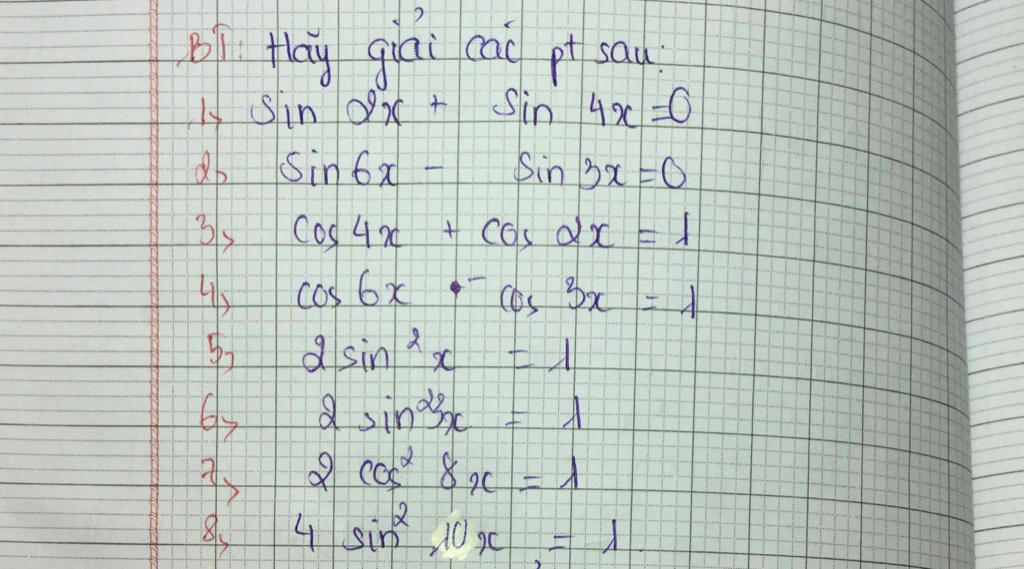 BT: Hãy giải các pt sau:
1, sin 2x + sin 4x = 0
2, sin 6x - sin 3x = 0
3, cos 4x + cos 2x = 1
4, cos 6x - cos 3x = 1
5, 2 sin² x = 1
6, 2 sin² 3x = 1
7, 2 cos² 8x = 1
8, 4 sin² 10x = 1